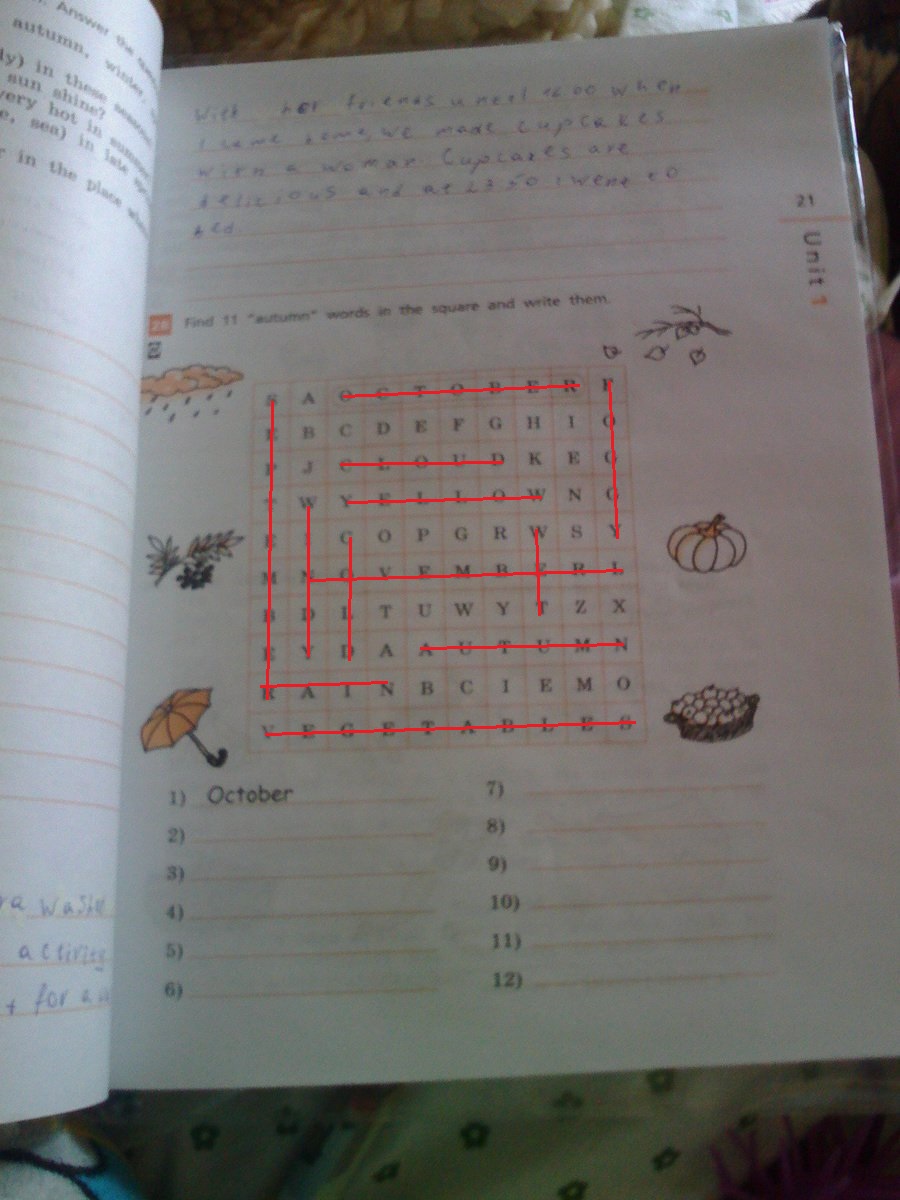 Answer the
autumn, winter,
ly) in these
sun shine?
very hot in
e, sea) in late
in the place
With her friends until 22 00 when
I came home, we made cupcakes
with a woman. Cupcakes are
delicious and at 23 50 I went to
bed
21
Unit 1
28 Find 11 "autumn" words in the square and write them.
S A O C T O B E R F
E B C D E F G H I O
P J C L O U D K E G
T W Y E L L O W N G
E I C O P G R W S Y
M N O V E M B E R L
B D L T U W Y T Z X
E Y D A A U T U M N
R A I N B C I E M O
V E G E T A B L E S
1) October
2)
3)
4)
5)
6)
7)
8)
9)
10)
11)
12)
activity
for a